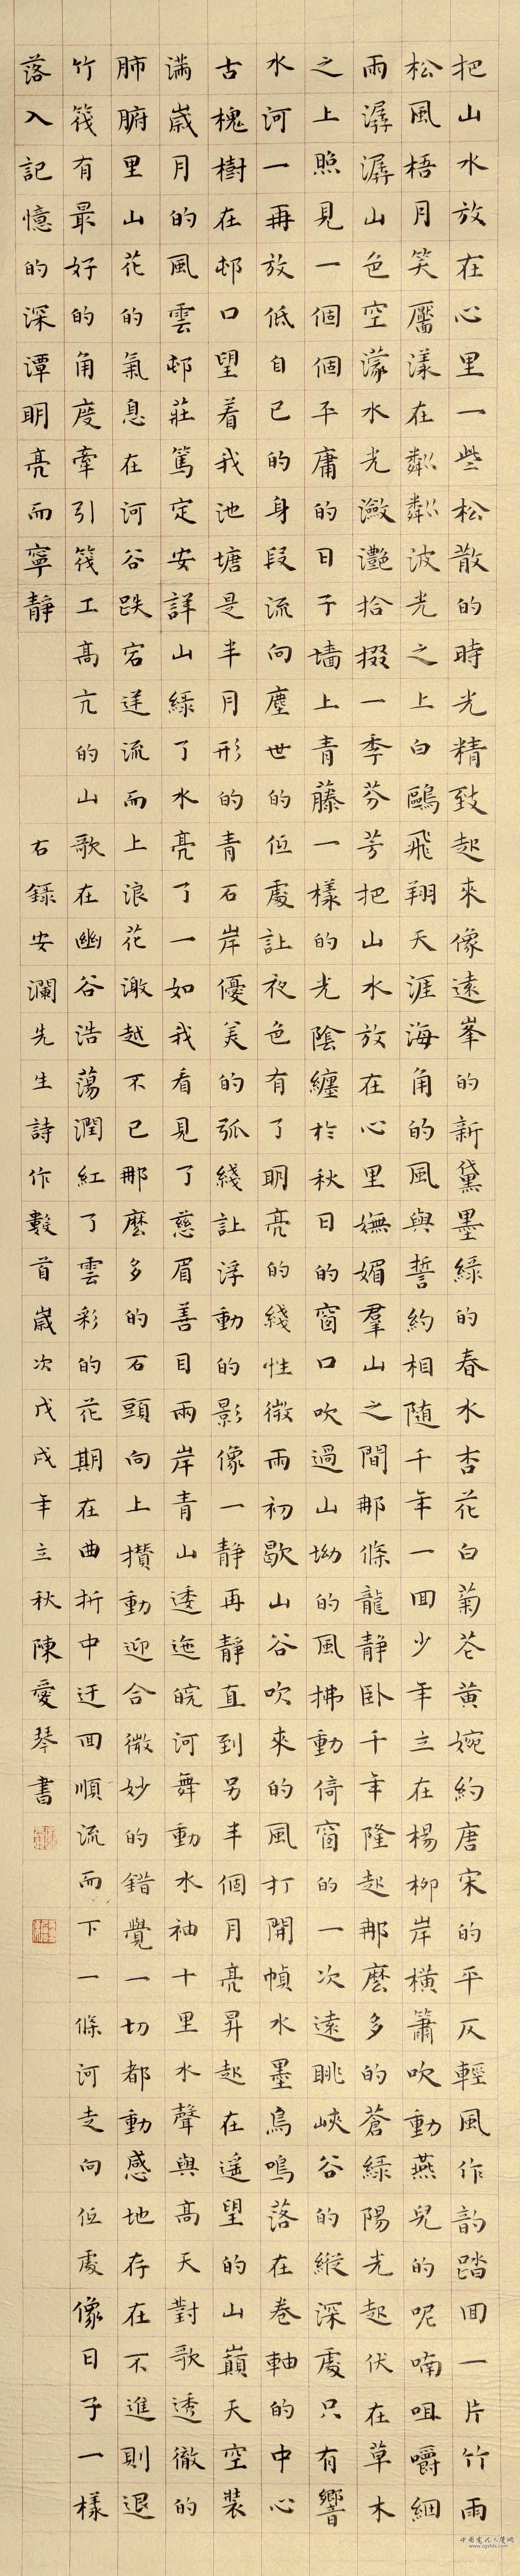 把山水放在心里一些松散的時光精致起來像遠峯的新黛墨綠的春水杏花白菊花黄婉約唐宋的平仄輕風作韵踏回一片竹雨
松風梧月笑靨漾在粼粼波光之上白鷗飛翔天涯海角的風與誓約相随千年一回少年立在楊柳岸橫簫吹動燕兒的呢喃咀嚼細
雨潺潺山色空濛水光瀲灧拾掇一季芬芳把山水放在心里嫵媚羣山之間那條龍静卧千年隆起那麽多的蒼緑陽光起伏在草木
之上照見一個個平庸的日子墻上青藤一樣的光陰纏於秋日的窗口吹過山坳的風拂動倚窗的一次遠眺峽谷的縱深處只有響
水河一再放低自已的身段流向塵世的低處讓夜色有了明亮的綫性微雨初歇山谷吹來的風打開幀水墨鳥鳴落在卷軸的中心
古槐樹在邨口望着我池塘是半月形的青石岸優美的弧綫讓浮動的影像一静再静直到另半個月亮昇起在遥望的山巔天空裝
滿嵗月的風雲邨莊篤定安詳山緑了水亮了一如我看見了慈眉善目兩岸青山逶迤皖河舞動水袖十里水聲與高天對歌透徹的
肺腑里山花的氣息在河谷跌宕逆流而上浪花激越不已那麽多的石頭向上攢動迎合微妙的錯覺一切都動感地存在不進則退
竹筏有最好的角度牽引筏工高亢的山歌在幽谷浩蕩潤紅了雲彩的花期在曲折中迂回順流而下一條河走向低處像日子一樣
落入記憶的深潭明亮而寧静
右録安瀾先生詩作數首嵗次戊戌年立秋陳愛琴書